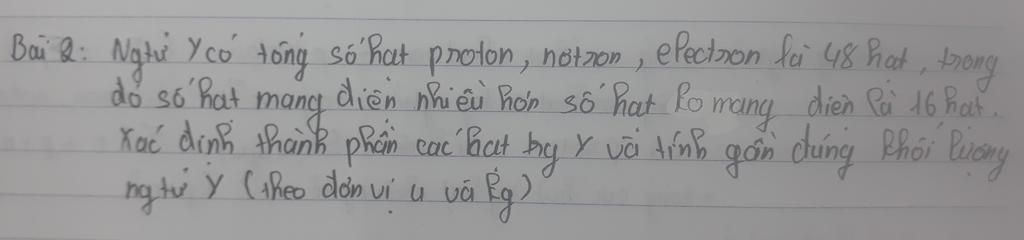 Bài 2: Ngtử Y có tổng số hạt proton, nơtron, electron là 48 hạt, trong
đó số hạt mang điện nhiều hơn số hạt ko mang điện là 16 hạt.
Xác định thành phần các hạt ng Y và tính gần đúng khối lượng
ngtử Y (theo đơn vị u và kg)